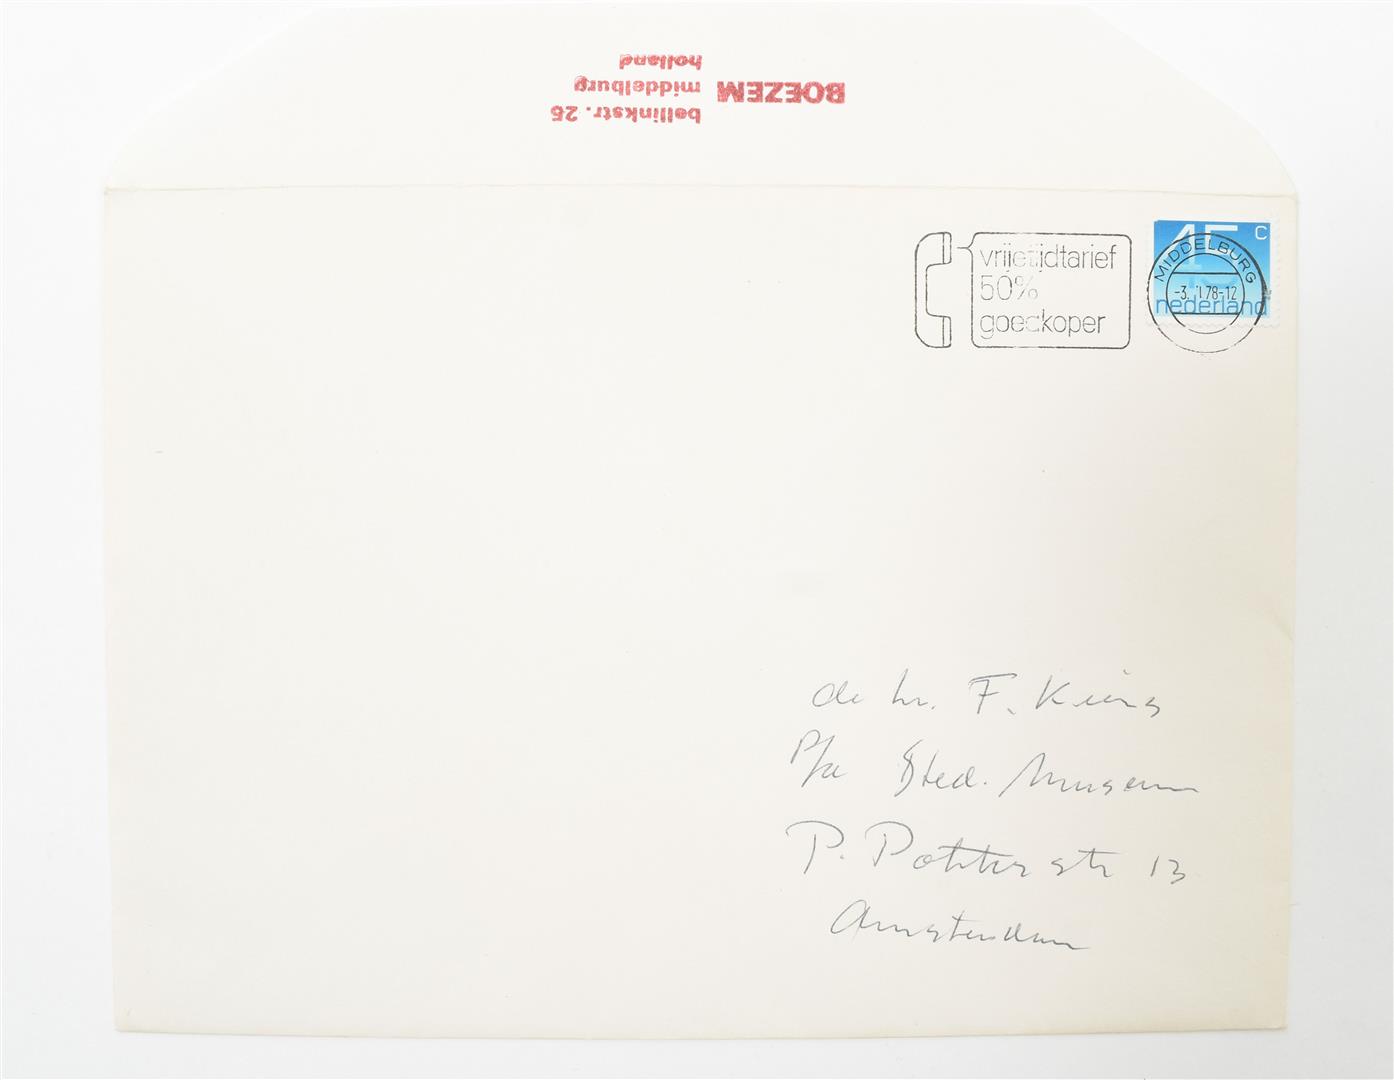 BOEZEM
bellinkstr. 25
middelburg
holland
vrijetijdtarief
50%
goedkoper
45 c
nederland
MIDDELBURG
-3. 78-12
de hr. F. Keers
P/a Sted. Museum
P. Potterstr 13
Amsterdam